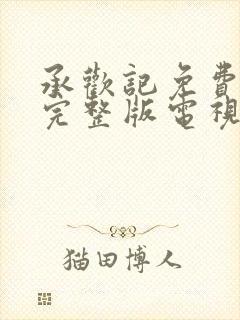 承歡記免費
完整版電視
猫田博人